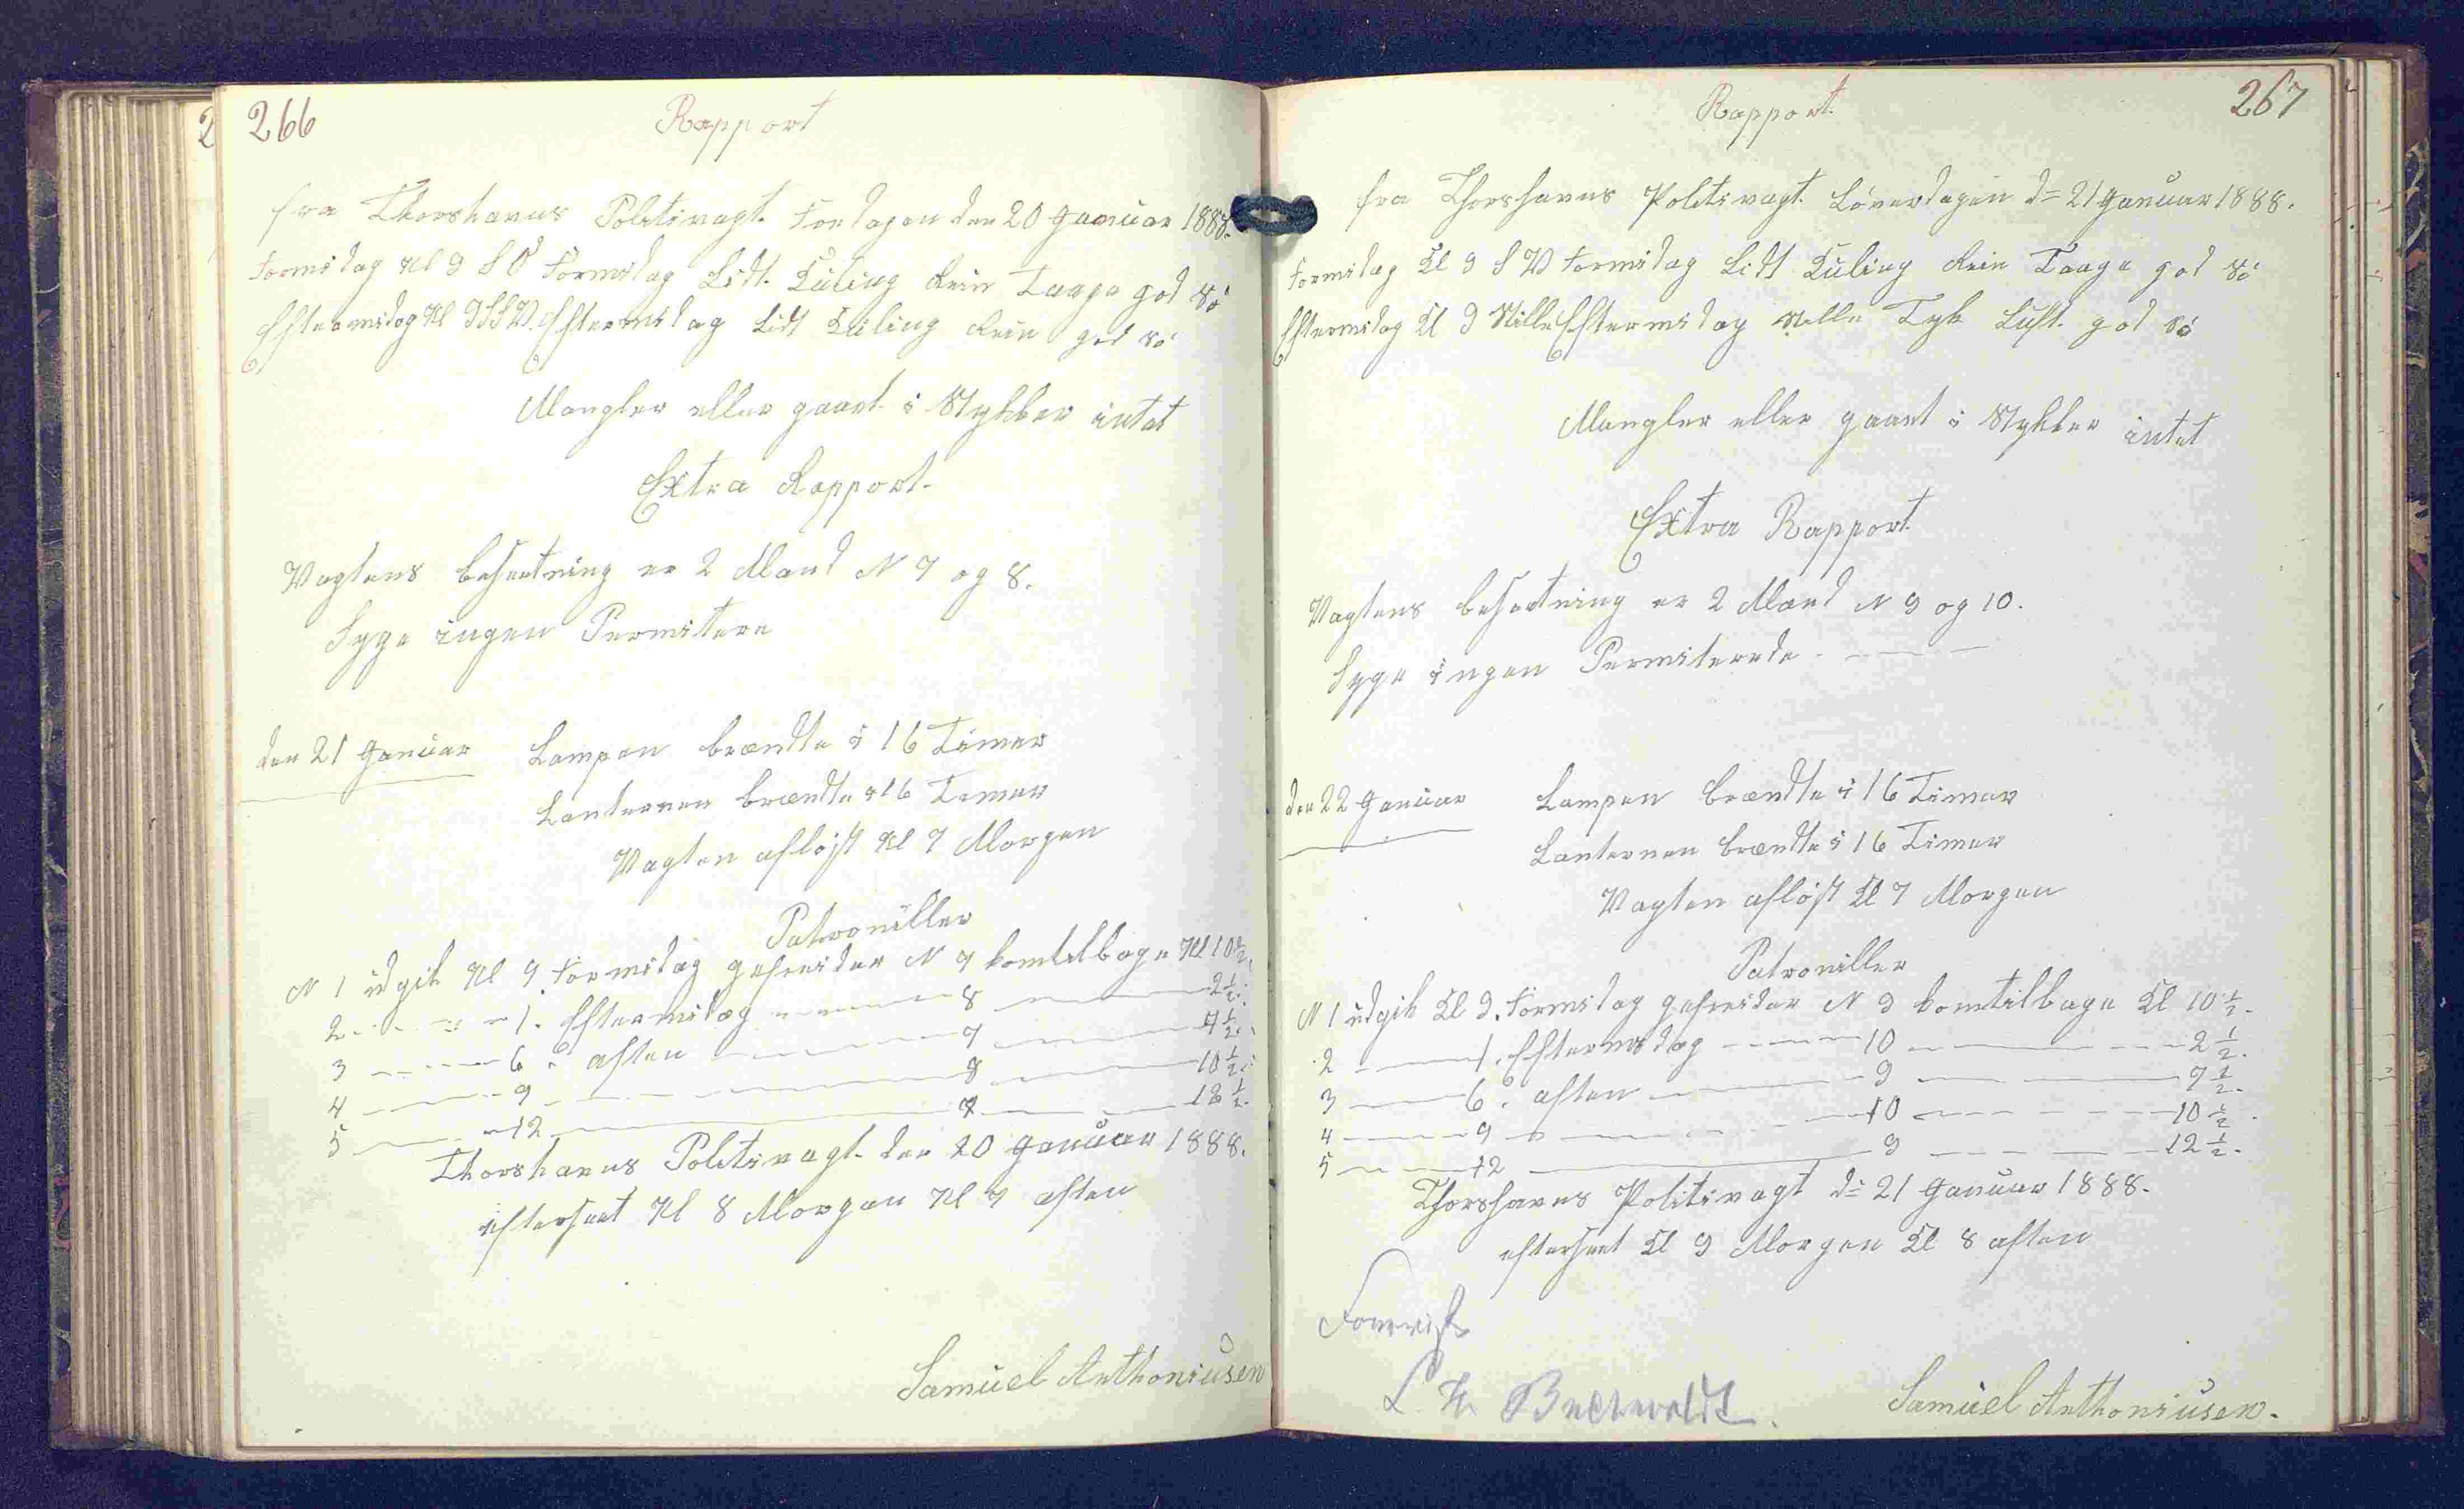 266
Rapport
fra Thorshavns Politivagt. Fredagen den 20 Januar 1888.
Formidag Kl 9 S O Formidag Lidt Kuling Rein Taage god Sø
Eftermidag Kl 9 SSV. Eftermidag Lidt Kuling Rein god Sø
Mangler eller gaaet i Stykker intet
Extra Rapport.
Vagtens besætning er 2 Mand N 7 og 8.
Syge ingen Permitere
den 21 Januar Lampen brændte i 16 Timer
Lanternen brændte i 16 Timer
Vagten afløst Kl 7 Morgen
Patrouiller
N 1 udgik Kl 9 Formidag gefreider N 7 kom tilbage Kl 10 1/2.
2 - - - - 1. Eftermidag - - - 8 - - - 2 1/2.
3 - - - - 6. aften - - - 7 - - - 7 1/2.
4 - - - - 9 - - - 8 - - - 10 1/2.
5 - - - - 12 - - - 7 - - - 12 1/2.
Thorshavns Politivagt den 20 Januar 1888.
efterseet Kl 8 Morgen Kl 7 aften
Samuel Anthoniusen
267
Rapport.
fra Thorshavns Politivagt. Løverdagen d= 21 Januar 1888.
Formidag Kl 9 S V Formidag Lidt Kuling Rein Taage god Sø
Eftermidag Kl 9 Stille Eftermidag Stille Tyk Luft. god Sø
Mangler eller gaaet i Stykker intet
Extra Rapport
Vagtens besætning er 2 Mand N 9 og 10.
Syge ingen Permiterede - - -
den 22 Januar Lampen brændte i 16 Timer
Lanternen brændte i 16 Timer
Vagten afløst Kl 7 Morgen
Patrouiller
N 1 udgik Kl 9. Formidag gefreider N 9 kom tilbage Kl 10 1/2.
2 - - - 1. Eftermidag - - - 10 - - - 2 1/2.
3 - - - 6. aften - - - 9 - - - 7 1/2.
4 - - - 9 - - - 10 - - - 10 1/2.
5 - - - 12 - - - 9 - - - 12 1/2.
Thorshavns Politivagt d= 21 Januar 1888.
efterseet Kl 9 Morgen Kl 8 aften
Forevist
Samuel Anthoniusen.